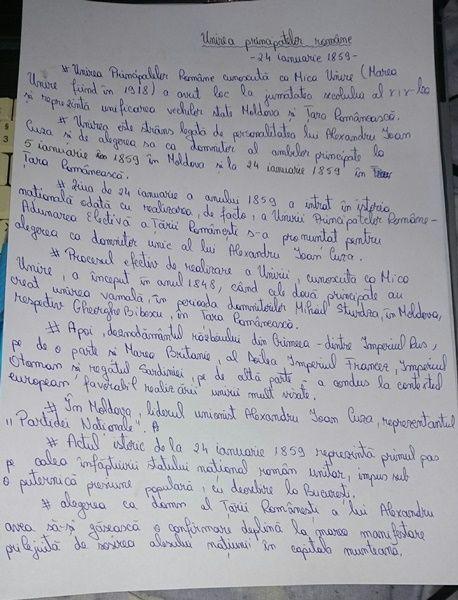 Unirea principatelor române
- 24 ianuarie 1859 -
# Unirea Principatelor Române cunoscută ca Mica Unire (Marea
Unire fiind în 1918) a avut loc la jumătatea secolului al XIX-lea
și reprezintă unificarea vechilor state Moldova și Țara Românească.
# Unirea este strâns legată de personalitatea lui Alexandru Ioan
Cuza și de alegerea sa ca domnitor al ambelor principate la
5 ianuarie în 1859 în Moldova și la 24 ianuarie 1859 în
Țara Românească.
# Ziua de 24 ianuarie a anului 1859 a intrat în istoria
națională odată cu realizarea, de facto, a Unirii Principatelor Române-
Adunarea Electivă a Țării Românești s-a pronunțat pentru
alegerea ca domnitor unic al lui Alexandru Ioan Cuza.
# Procesul efectiv de realizare a Unirii, cunoscută ca Mica
Unire, a început în anul 1848, când cele două principate au
creat unirea vamală, în perioada domnitorilor Mihail Sturdza, în Moldova,
respectiv Gheorghe Bibescu, în Țara Românească.
# Apoi, deznodământul războiului din Crimeea - dintre Imperiul Rus,
pe de o parte și Marea Britanie, al Doilea Imperiul Francez, Imperiul
Otoman și regatul Sardiniei, pe de altă parte - a condus la contextul
european favorabil realizării unirii mult visate.
# În Moldova, liderul unionist Alexandru Ioan Cuza, reprezentantul
"Partidei Naționale".
# Actul istoric de la 24 ianuarie 1859 reprezintă primul pas
pe calea înfăptuirii statului național român unitar, impus sub
o puternică presiune populară, cu deosebire la București.
# alegerea ca domn al Țării Românești a lui Alexandru
avea să-și găsească o confirmare deplină la marea manifestare
prilejuită de sosirea alesului națiunii în capitala munteană.